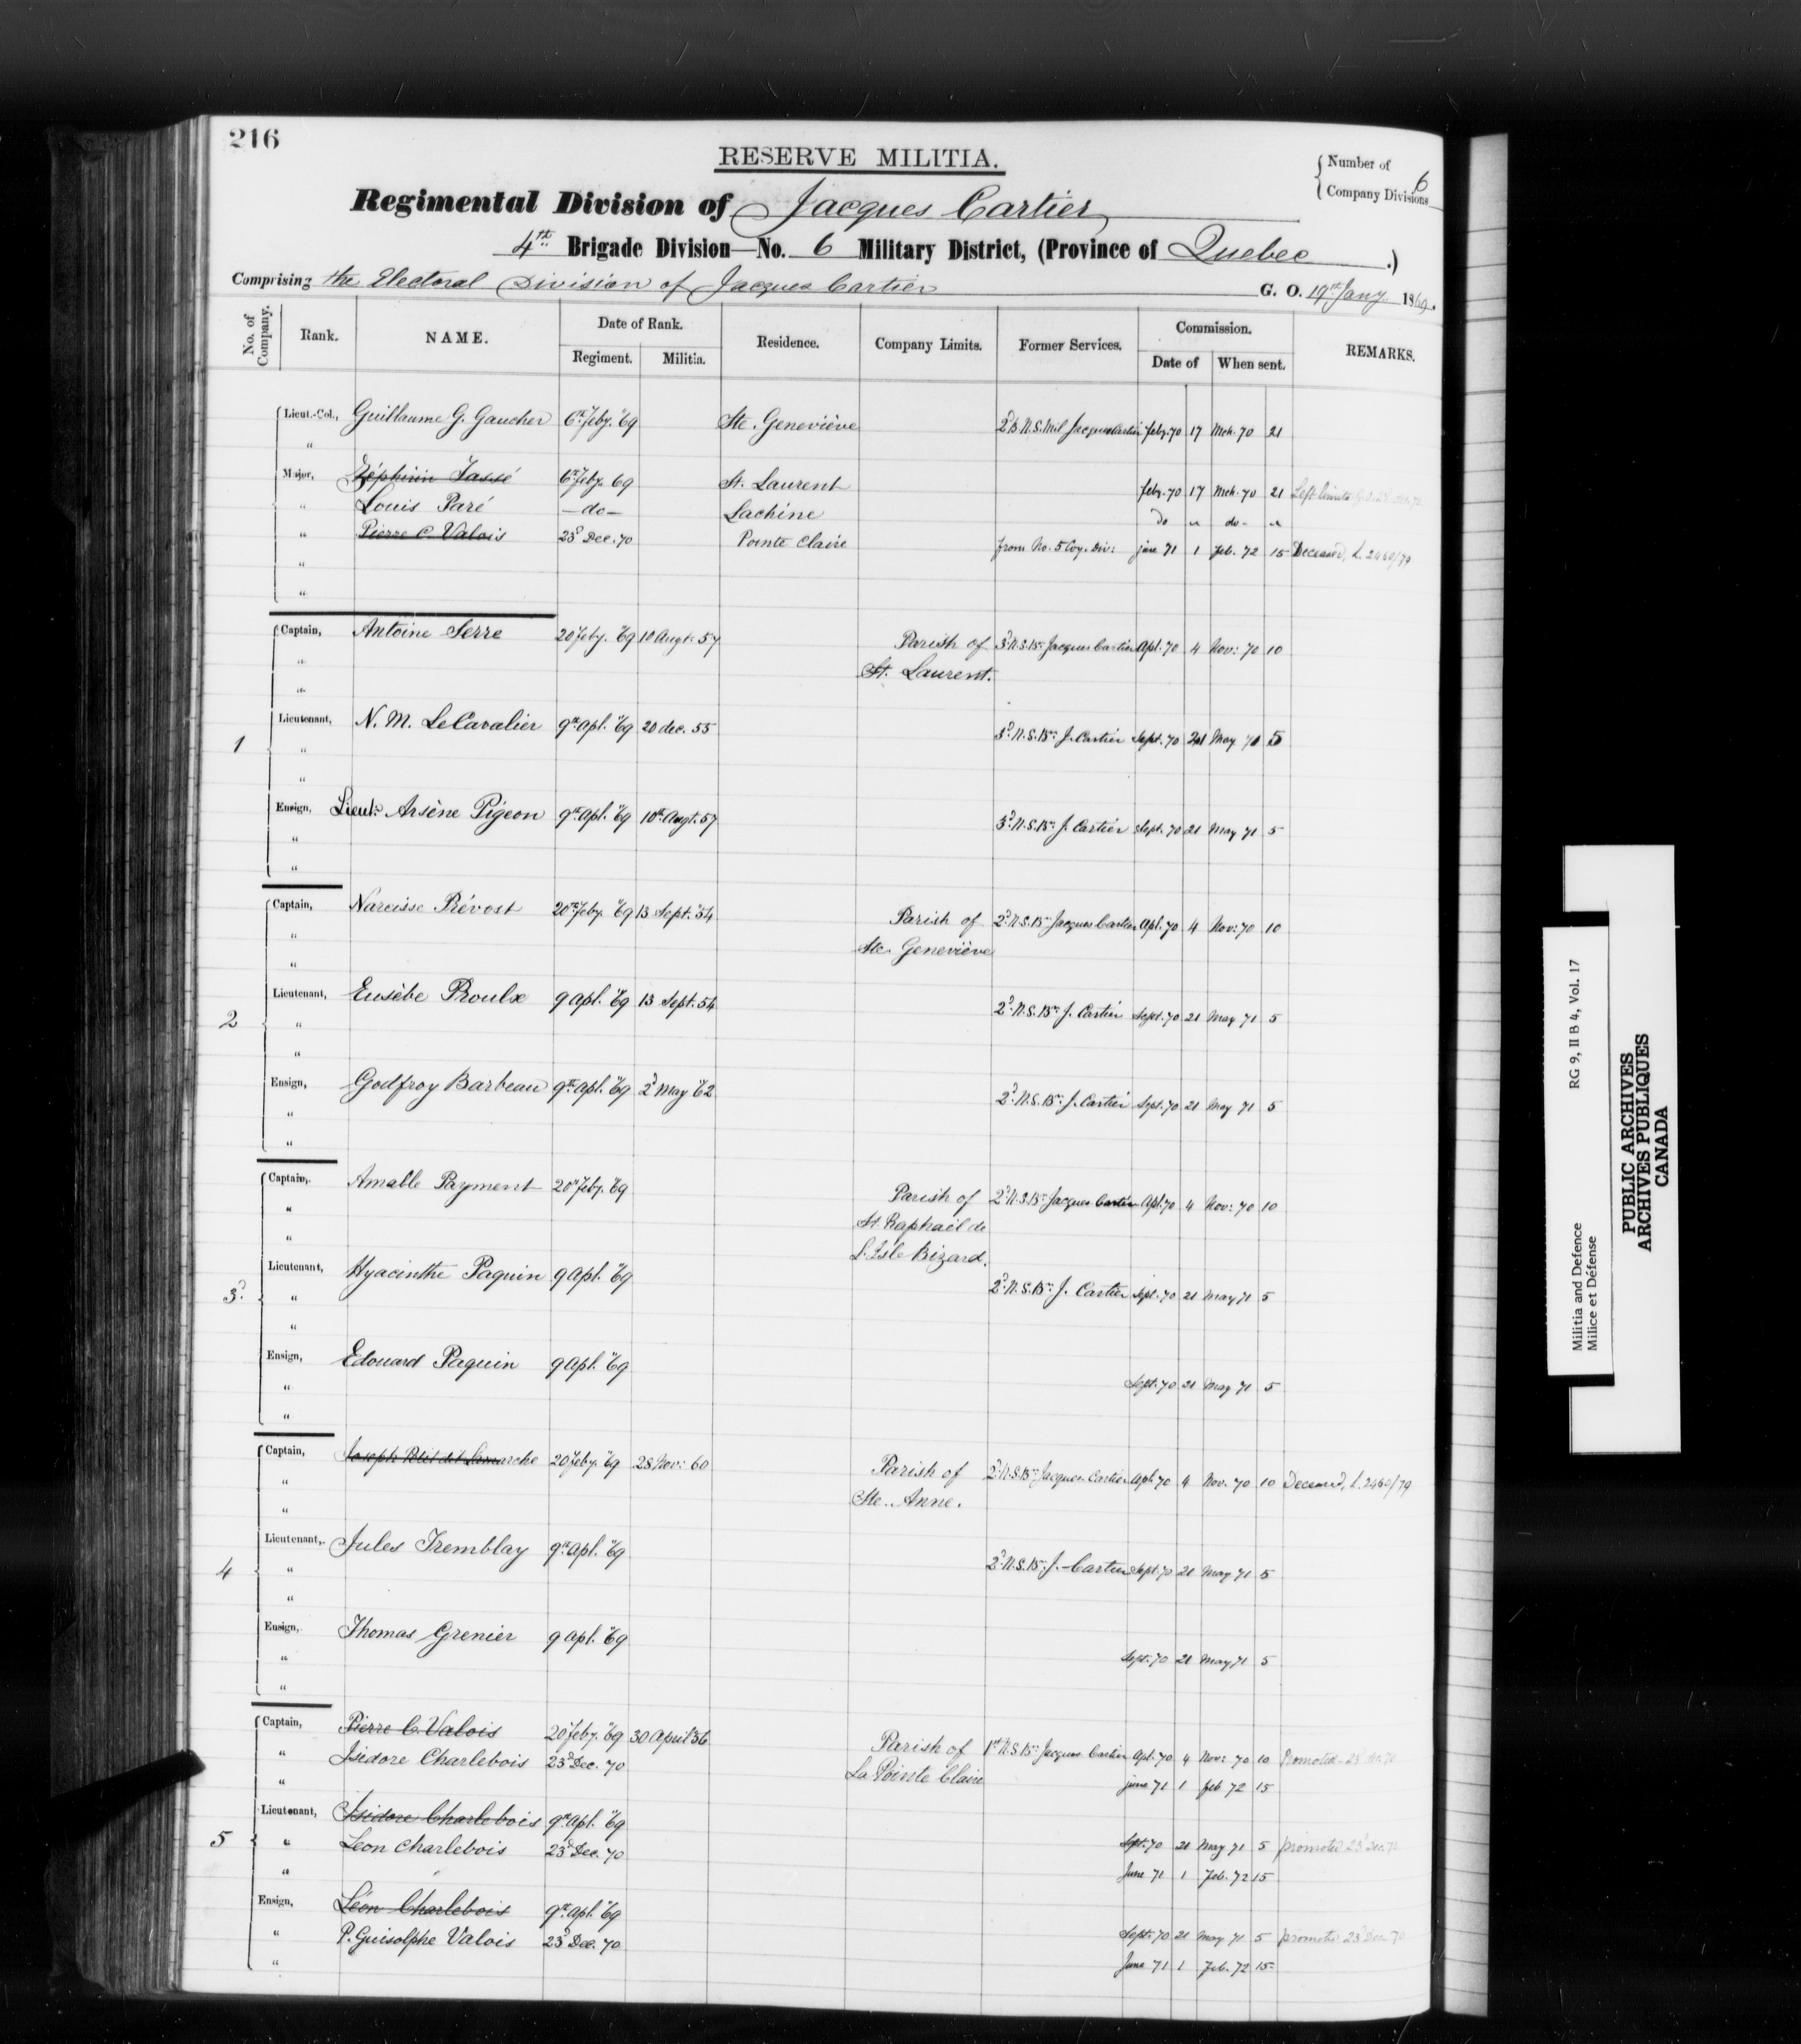 216
RESERVE MILITIA.
Number of Company Divisions 6
Regimental Division of Jacques Cartier
4th Brigade Division—No. 6 Military District, (Province of Quebec .)
Comprising the Electoral Division of Jacques Cartier G. O. 19th Jany 1869.
No. of Company. Rank. NAME. Date of Rank. Regiment. Militia. Residence. Company Limits. Former Services. Commission. Date of When sent. REMARKS.
Lieut.-Col., Guillaume G. Gaucher 6th Feby. "69 Ste. Geneviève 2d B N.S. Mil Jacques Cartier Feby. 70 17 Mch. 70 21
"
Major, Zéphirin Tassé 6th Feby. 69 St. Laurent Feby. 70 17 Mch. 70 21 Left limits
" Louis Paré —do— Lachine Do " do- "
" Pierre C. Valois 23d Dec. 70 Pointe Claire from No. 5 Coy. Div: june 71 1 Feb. 72 15 Deceased, L. 2460/79
"
"
Captain, Antoine Serre 20 Feby. "69 10 Augt. 57 Parish of 3d N.S. Bn Jacques Cartier Apl. 70 4 Nov: 70 10
" St. Laurent.
"
Lieutenant, N. M. LeCavalier 9th Apl. "69 20 dec. 55 3d N.S. Bn J. Cartier Sept. 70 21 May 71 5
1 "
"
Ensign, Lieut: Arsène Pigeon 9th Apl. "69 10th Augt. 57 3d N.S. Bn J. Cartier Sept. 70 21 May 71 5
"
"
Captain, Narcisse Prévost 20th Feby. "69 13 Sept. "54 Parish of 2d N.S. Bn Jacques Cartier Apl. 70 4 Nov: 70 10
" Ste. Geneviève
"
Lieutenant, Eusèbe Proulx 9 Apl. "69 13 Sept. 54 2d N.S. Bn J. Cartier Sept. 70 21 May 71 5
2 "
"
Ensign, Godfroy Barbeau 9th Apl. "69 2d May "62 2d N.S. Bn J. Cartier Sept. 70 21 May 71 5
"
"
Captain, Amable Payment 20th Feby. "69 Parish of 2d N.S. Bn Jacques Cartier Apl. 70 4 Nov: 70 10
" St. Raphaël de
" L'Isle Bizard.
Lieutenant, Hyacinthe Paquin 9 Apl. "69 2d N.S. Bn J. Cartier Sept. 70 21 May 71 5
3. "
"
Ensign, Edouard Paquin 9 Apl. "69 Sept. 70 21 May 71 5
"
"
Captain, Joseph Petit dit Lamarche 20 Feby. "69 28 Nov: 60 Parish of 2d N.S. Bn Jacques Cartier Apl. 70 4 Nov. 70 10 Deceased, L. 2460/79
" Ste. Anne.
"
Lieutenant, Jules Tremblay 9th Apl. "69 2d N.S. Bn J. Cartier Sept. 70 21 May 71 5
4 "
"
Ensign, Thomas Grenier 9 Apl. "69 Sept. 70 21 May 71 5
"
"
Captain, Pierre C. Valois 20 Feby. "69 30 April "56 Parish of 1st N.S. Bn Jacques Cartier Apl. 70 4 Nov: 70 10 Promoted 23d Dec. 70
" Isidore Charlebois 23d Dec. 70 La Pointe Claire june 71 1 Feb 72 15
"
Lieutenant, Isidore Charlebois 9th Apl. "69 Sept. 70 21 May 71 5 promoted 23d Dec. 70
5 " Leon Charlebois 23d Dec. 70 June 71 1 Feb. 72 15
"
Ensign, Léon Charlebois 9th Apl. "69 Sept. 70 21 May 71 5 promoted 23d Dec 70
" P. Guisolphe Valois 23d Dec. 70 June 71 1 Feb. 72 15
"
Militia and Defence RG 9, II B 4, Vol. 17
Milice et Défense
PUBLIC ARCHIVES
ARCHIVES PUBLIQUES
CANADA